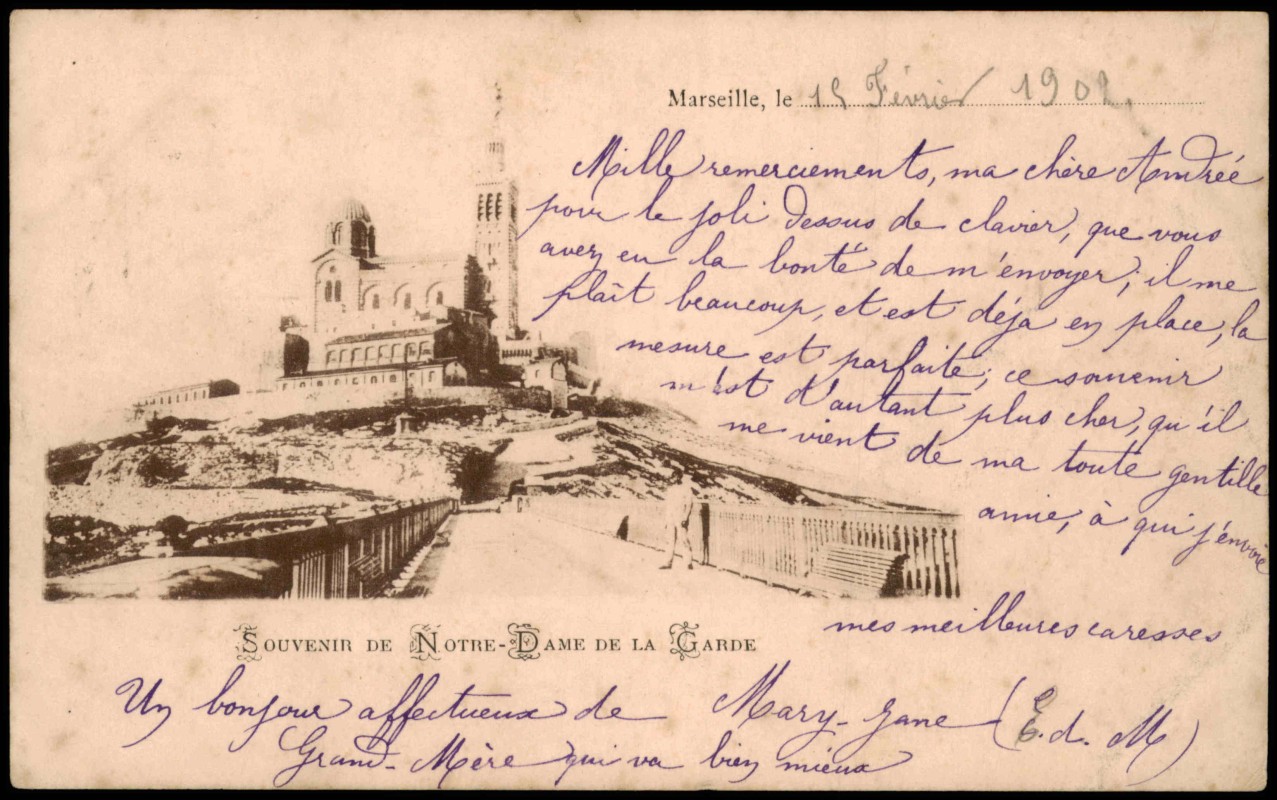 Marseille, le 15 Février 1902,
Mille remerciements, ma chère Andrée
pour le joli dessus de clavier, que vous
avez eu la bonté de m'envoyer; il me
plaît beaucoup, et est déja en place, la
mesure est parfaite; ce souvenir
m'est d'autant plus cher, qu'il
me vient de ma toute gentille
amie, à qui j'envoie
mes meilleures caresses
SOUVENIR DE NOTRE-DAME DE LA GARDE
Un bonjour affectueux de Mary-Jane (E. d. M)
Grand-Mère qui va bien mieux